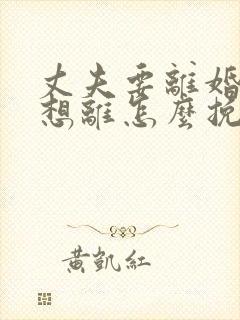 丈夫要離婚
想離怎麼挽
黃凱紅